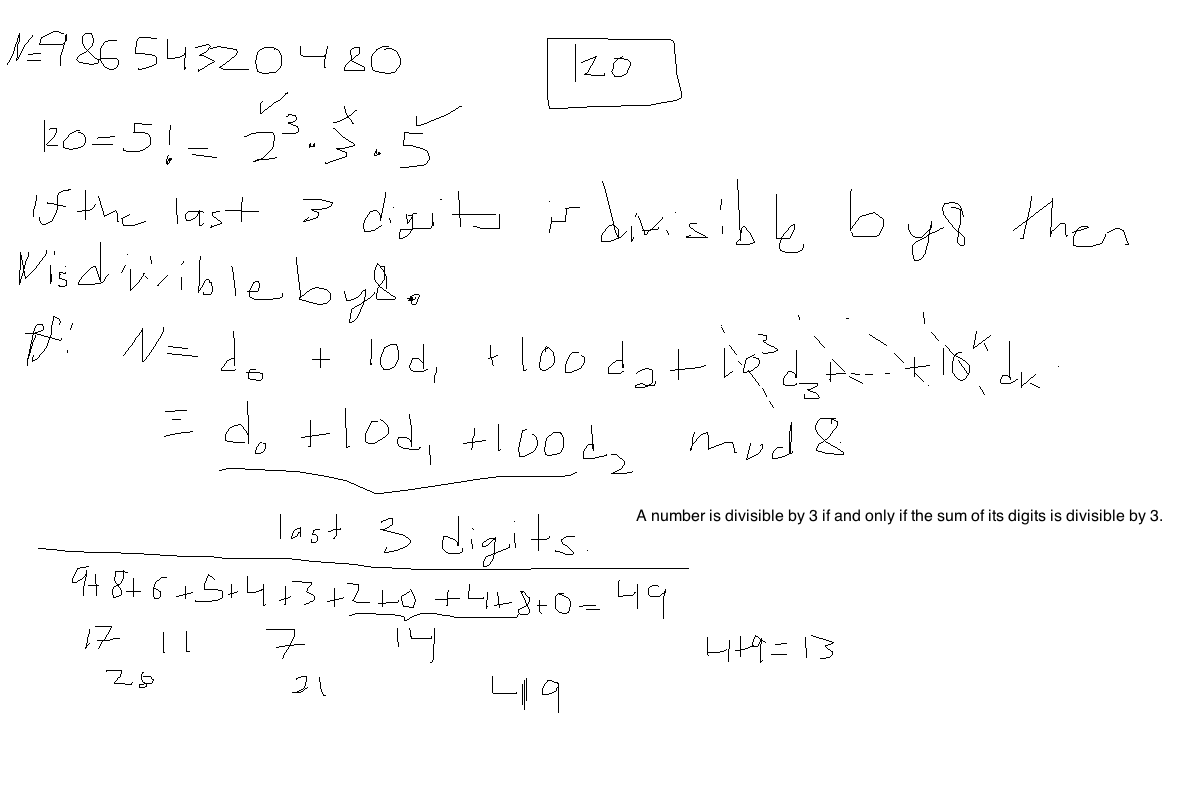 N=98654320480
120
120=5!= 2^3 · 3 · 5
If the last 3 digits is divisible by 8 then
N is divisible by 8.
Pf: N= d_0 + 10d_1 + 100d_2 + 10^3 d_3 + --- + 10^k d_k
≡ d_0 + 10d_1 + 100d_2 mod 8
A number is divisible by 3 if and only if the sum of its digits is divisible by 3.
last 3 digits.
9+8+6+5+4+3+2+0+4+8+0= 49
17 11 7 14
4+9=13
28 21 49